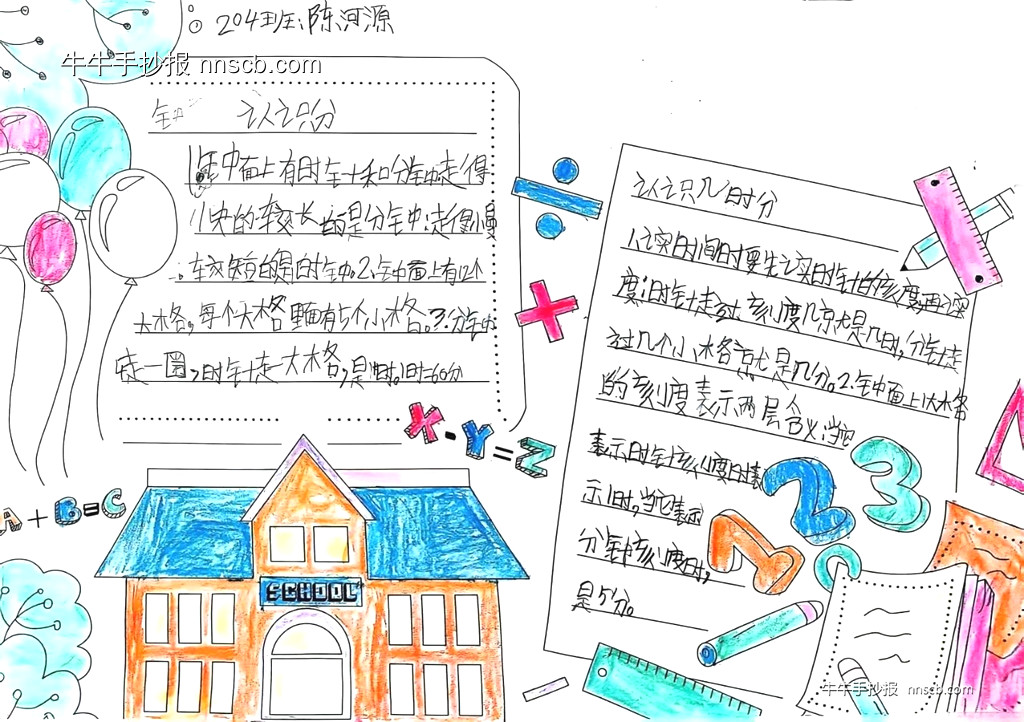 204班:陈河源
牛牛手抄报 nnscb.com
认识分
1钟面上有时针和分针,走得
小块的较长的是分针;走得慢
较短的是时针。2.钟面上有12个
大格,每个大格里面有5个小格。3.分针
走一圈,时针走一大格,是1时。1时=60分
认识几时分
1.读时间时要先读时针的刻度再读
度;时针走过刻度几就是几时,分针走
过几个小格就是几分。2.钟面上1大格
的刻度表示两层含义:当它
表示时针刻度时表
示1时,当它表示
分针刻度时,
是5分。
X-Y=Z
A+B=C
SCHOOL
1 2 3
牛牛手抄报 nnscb.com